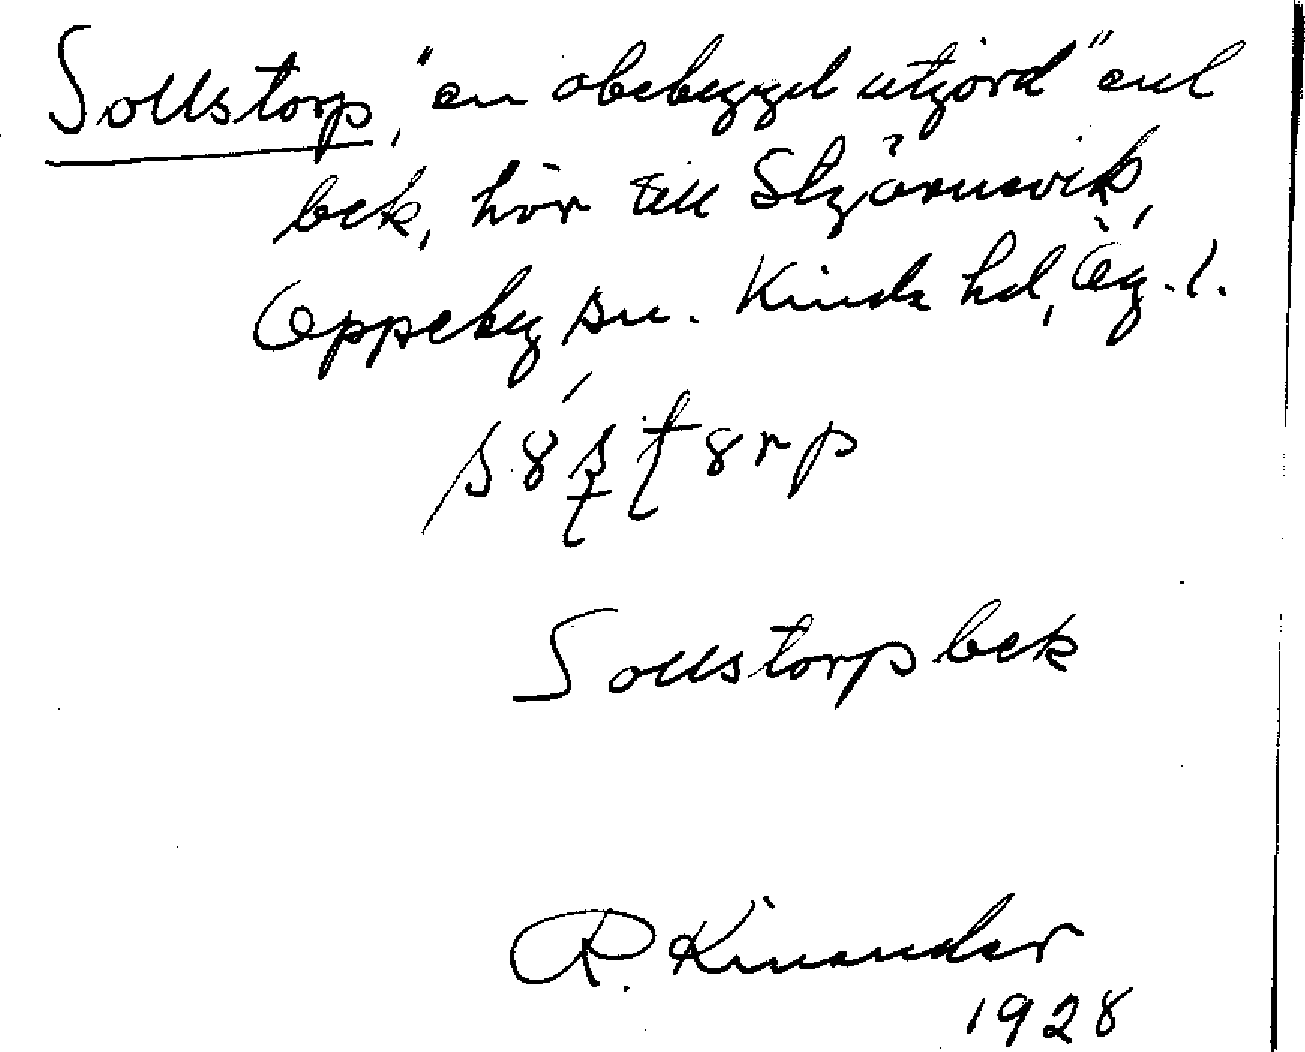 Sollstorp, "en obebyggd utjord" enl
bek, hör till Stjärnevik,
Oppeby sn. Kinda hd, Ög. l.
Sollstorp bek
R. Kinander
1928